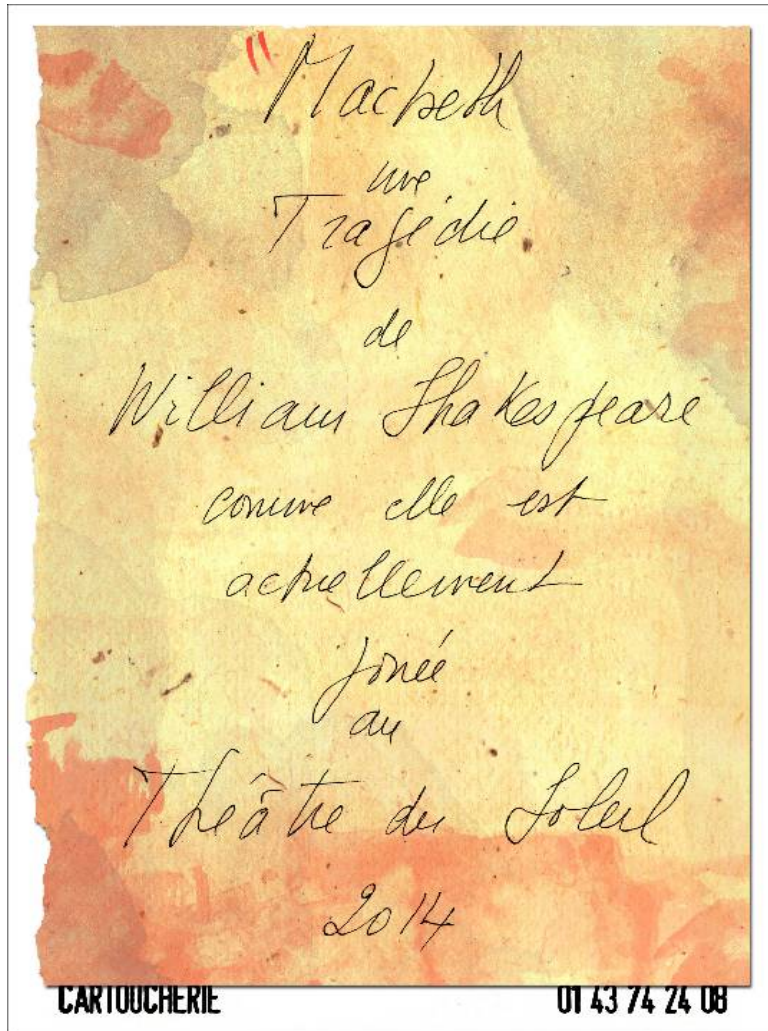 Macbeth
une
Tragédie
de
William Shakespeare
comme elle est
actuellement
jouée
au
Théâtre du Soleil
2014
CARTOUCHERIE 01 43 74 24 08